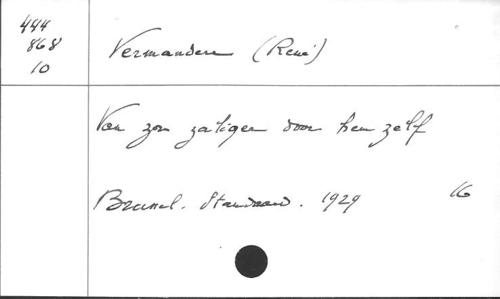 444
868
10
Vermandere (René)
Van zon zaliger door hem zelf
Brussel. Standaard. 1929 16